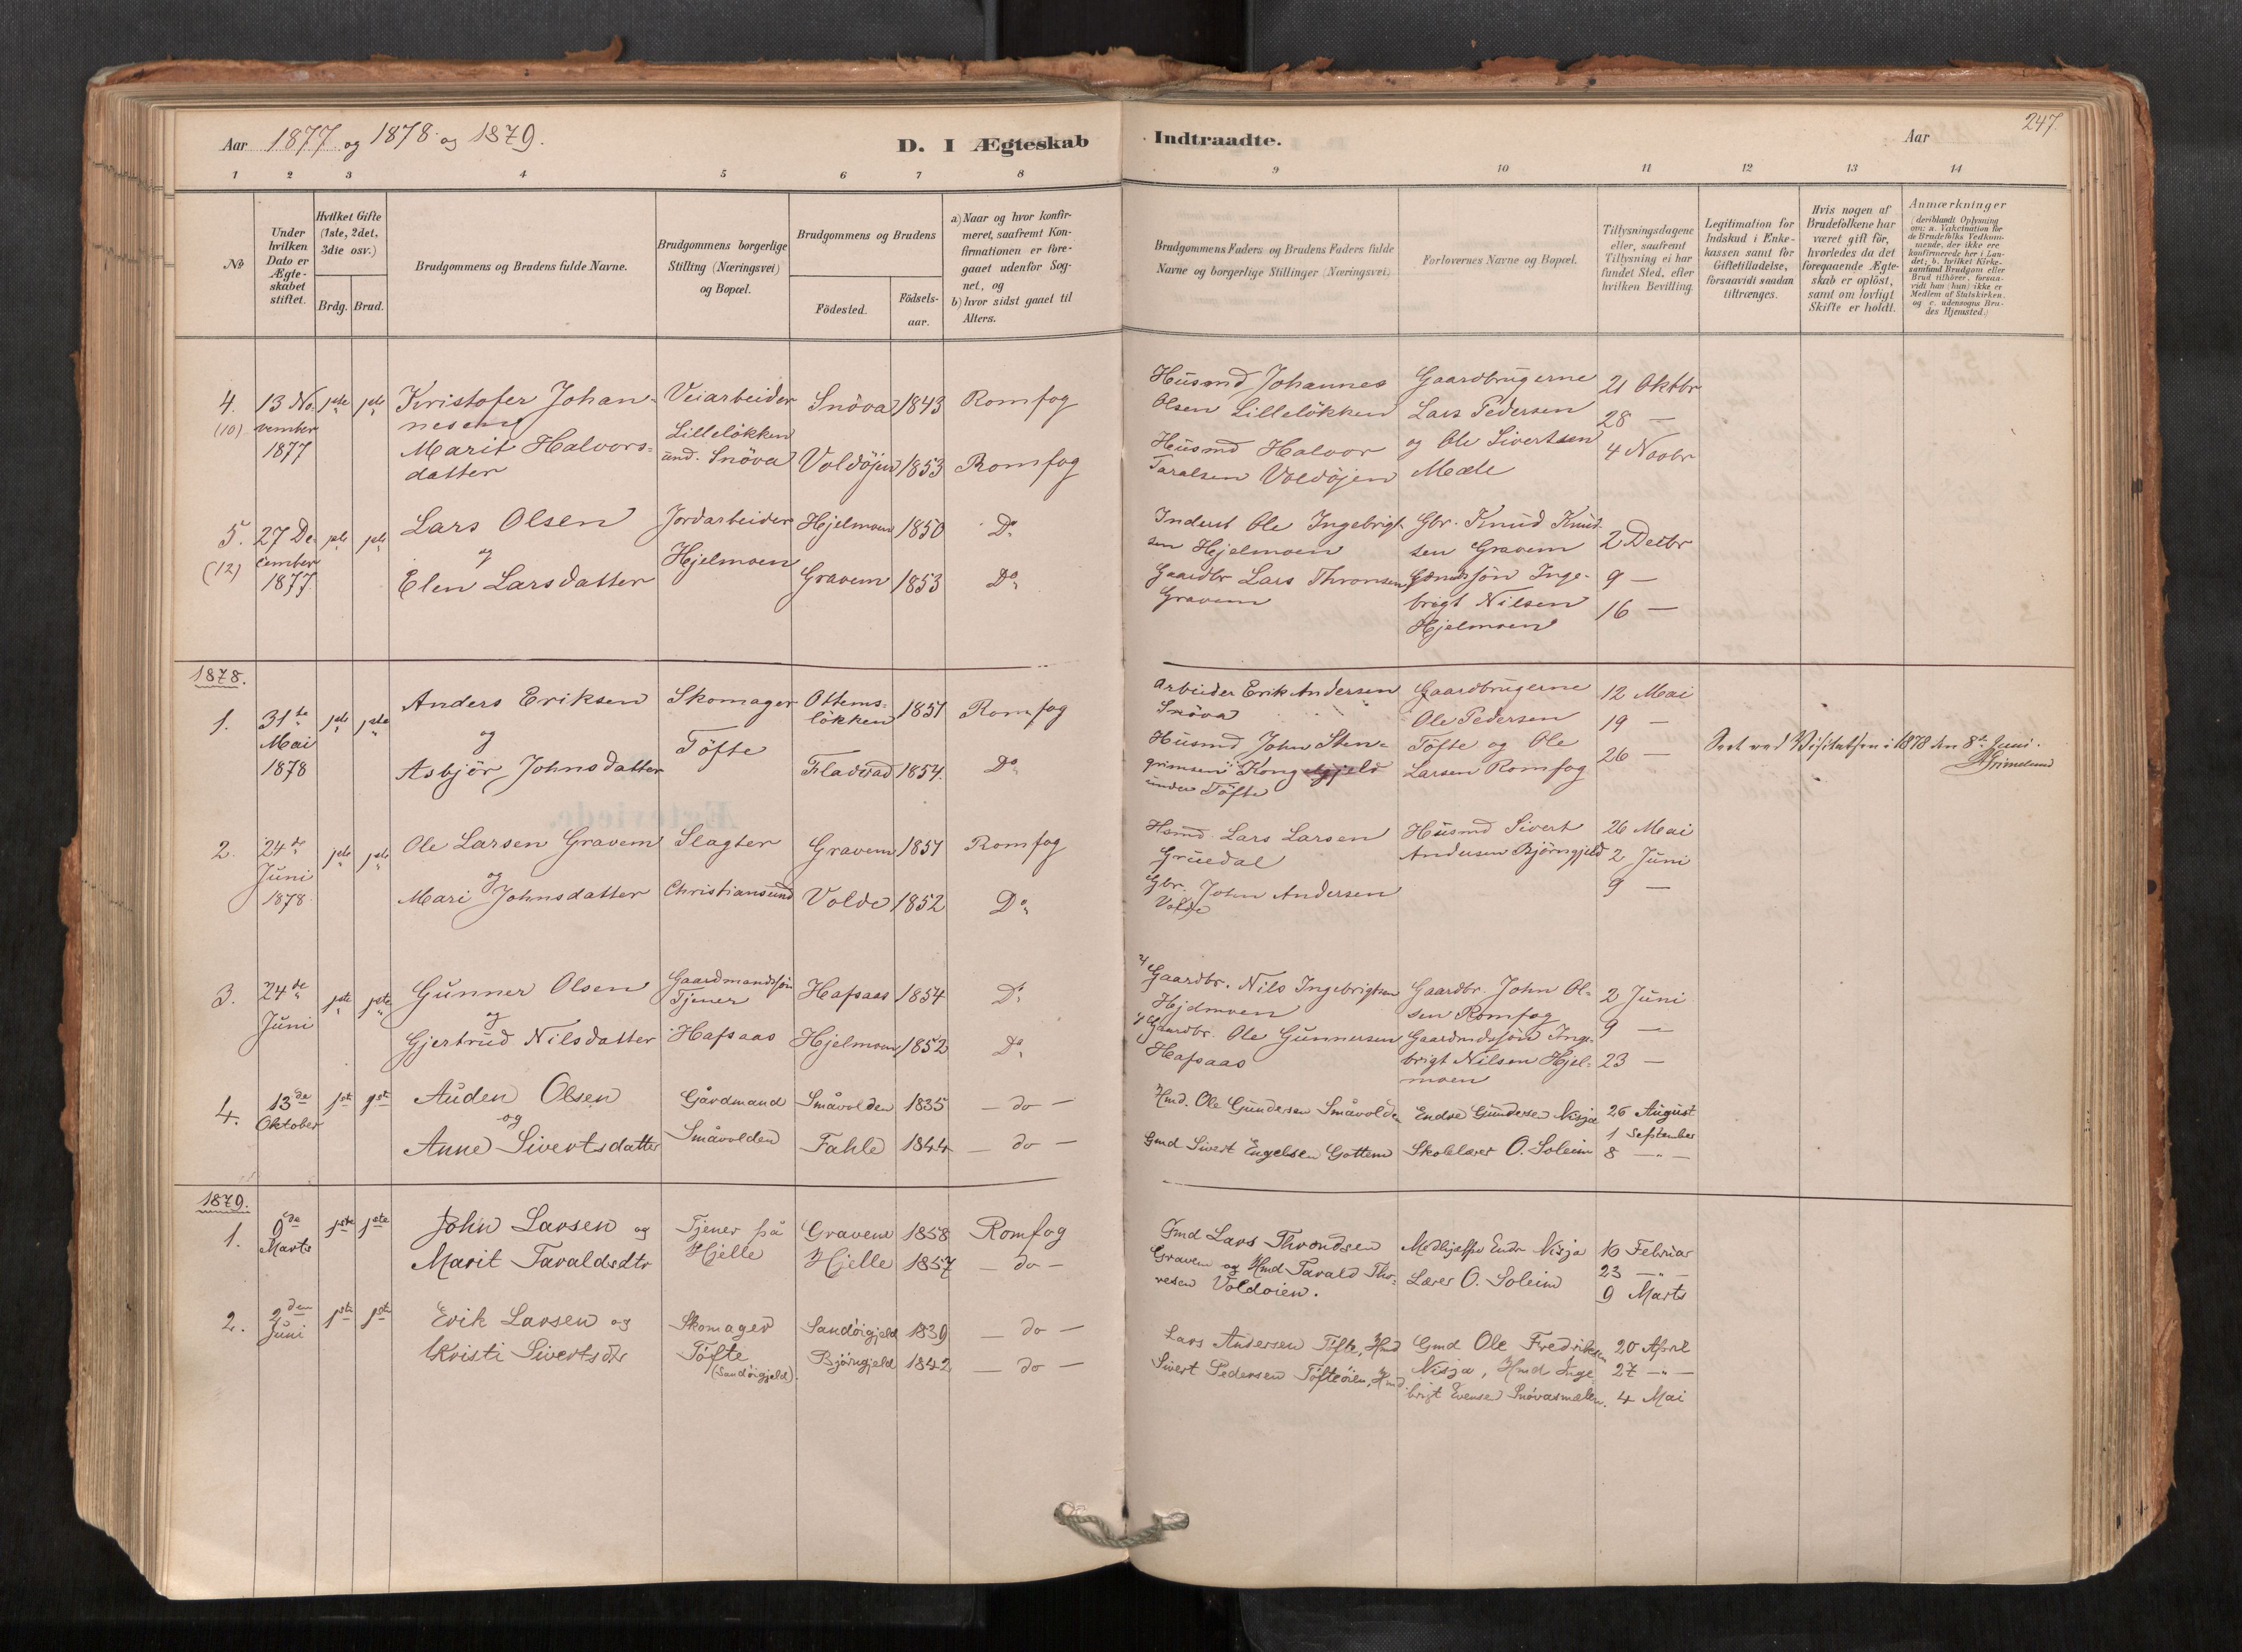 Aar 1877 og 1878 og 1879.
D. I Ægteskab Indtraadte.
Aar
247.
1 2 3 4 5 6 7 8 9 10 11 12 13 14
No
Under hvilken Dato er Ægte-skabet stiftet.
Hvilket Gifte (1ste, 2det, 3die osv.)
Brdg. Brud.
Brudgommens og Brudens fulde Navne.
Brudgommens borgerlige Stilling (Næringsvei) og Bopæl.
Brudgommens og Brudens
Födested.
Födsels-aar.
a) Naar og hvor konfir-meret, saafremt Kon-firmationen er fore-gaaet udenfor Sog-net, og
b) hvor sidst gaaet til Alters.
Brudgommens Faders og Brudens Faders fulde Navne og borgerlige Stillinger (Næringsvei)
Forlovernes Navne og Bopæl.
Tillysningsdagene eller, saafremt Tillysning ei har fundet Sted, efter hvilken Bevilling.
Legitimation for Indskud i Enke-kassen samt for Giftetilladelse, forsaavidt saadan tiltrænges.
Hvis nogen af Brudefolkene har været gift för, hvorledes da det foregaaende Ægte-skab er oplöst, samt om lovligt Skifte er holdt.
Anmærkninger (deriblandt Oplysning om: a. Vakcination for de Brudefolks Vedkom-mende, der ikke ere konfirmerede her i Lan-det; b. hvilket Kirke-samfund Brudgom eller Brud tilhörer, forsaa-vidt han (hun) ikke er Medlem af Statskirken, og c. udensogns Bru-des Hjemsted.)
4. (10) 13 No-vember 1877 1ste 1ste
Kristofer Johan-nesen og
Marit Halvors-datter
Veiarbeider
Lilleløkken und. Snöva
Snöva 1843 Romfog
Voldöjen 1853 Romfog
Husmd Johannes
Olsen Lilleløkken
Husmd Halvor
Taralsen Voldöjen
Gaardbrugerne
Lars Pedersen
og Ole Sivertsen
Mæle
21 Oktbr
28 —
4 Novbr
5. (12) 27 De-cember 1877. 1ste 1ste
Lars Olsen
og
Elen Larsdatter
Jordarbeider
Hjelmoen
Hjelmoen 1850 Do
Gravem 1853 Do
Inderst Ole Ingebrigt-
sen Hjelmoen
Gaardbr Lars Thronsen
Gravem
Gbr. Knud Knud-
sen Gravem
Gdmdssön Inge-
brigt Nilsen
Hjelmoen
2 Decbr
9 —
16 —
1878.
1. 31te Mai 1878 1ste 1ste
Anders Eriksen
og
Asbjör Johnsdatter
Skomager
Töfte
Ottems-løkken 1851 Romfog
Fladvad 1854. Do
Arbeider Erik Andersen
Snöva
Husmd John Sten-
grimsen Kongsgjeld
under Töfte
Gaardbrugerne
Ole Pedersen
Töfte og Ole
Larsen Romfog
12 Mai
19 —
26 —
Seet ved Visitatsen i 1878 den 8de Juni.
Grimelund
Ægteviede.
2. 24de Juni 1878 1ste 1ste
Ole Larsen Gravem
og
Mari Johnsdatter
Slagter
Christiansund
Gravem 1851 Romfog
Volde 1852 Do
Hsmd. Lars Larsen
Gruedal
Gbr. John Andersen
Volde
Husmd Sivert
Andersen Björngjeld
26 Mai
2 Juni
9 —
3. 24de Juni 1ste 1ste
Gunner Olsen
og
Gjertrud Nilsdatter
Gaardmandssön
Tjener
Hafsaas
Hafsaas 1854 Do
Hjelmoen 1852 Do
Gaardbr. Nils Ingebrigtsen
Hjelmoen
Gaardbr. Ole Gunnersen
Hafsaas
Gaardbr. John Ol-
sen Romfog
Gaardmdssön Inge-
brigt Nilsen Hjel-
moen
2 Juni
9 —
23 —
4. 13de Oktober 1ste 1ste
Auden Olsen
og
Anne Sivertsdatter
Gårdmand
Småvolden
Småvolden 1835 — do —
Fahle 1844 — do —
Hmd. Ole Gundersen Småvolden
Gmd Sivert Engelsen Gottem
Endre Gundersen Nisja
Skolelærer O. Soleim
26 August
1 September
8 — " —
1879.
1. 9de Marts 1ste 1ste
John Larsen og
Marit Taraldsdtr
Tjener på
Hjelle
Gravem 1858 Romfog
Hjelle 1857 — do —
Gmd Lars Throndsen
Gravem og Hmd Tarald Tho-
resen Voldøien.
Medhjælper Endr Nisja
Lærer O. Soleim
16 Februar
23 — " —
9 Marts
2. 2den Juni 1ste 1ste
Erik Larsen og
Kristi Sivertsdtr
Skomager
Töfte
(Sandöigjeld).
Sandöigjeld 1839 — do —
Björngjeld 1842 — do —
Lars Andersen Töfte, Hmd
Sivert Pedersen Töfteöien, Hmd.
Gmd Ole Fredriksen
Nisja, Hmd Inge-
brigt Evensen Snövasmælen.
20 April
27 — " —
4 Mai